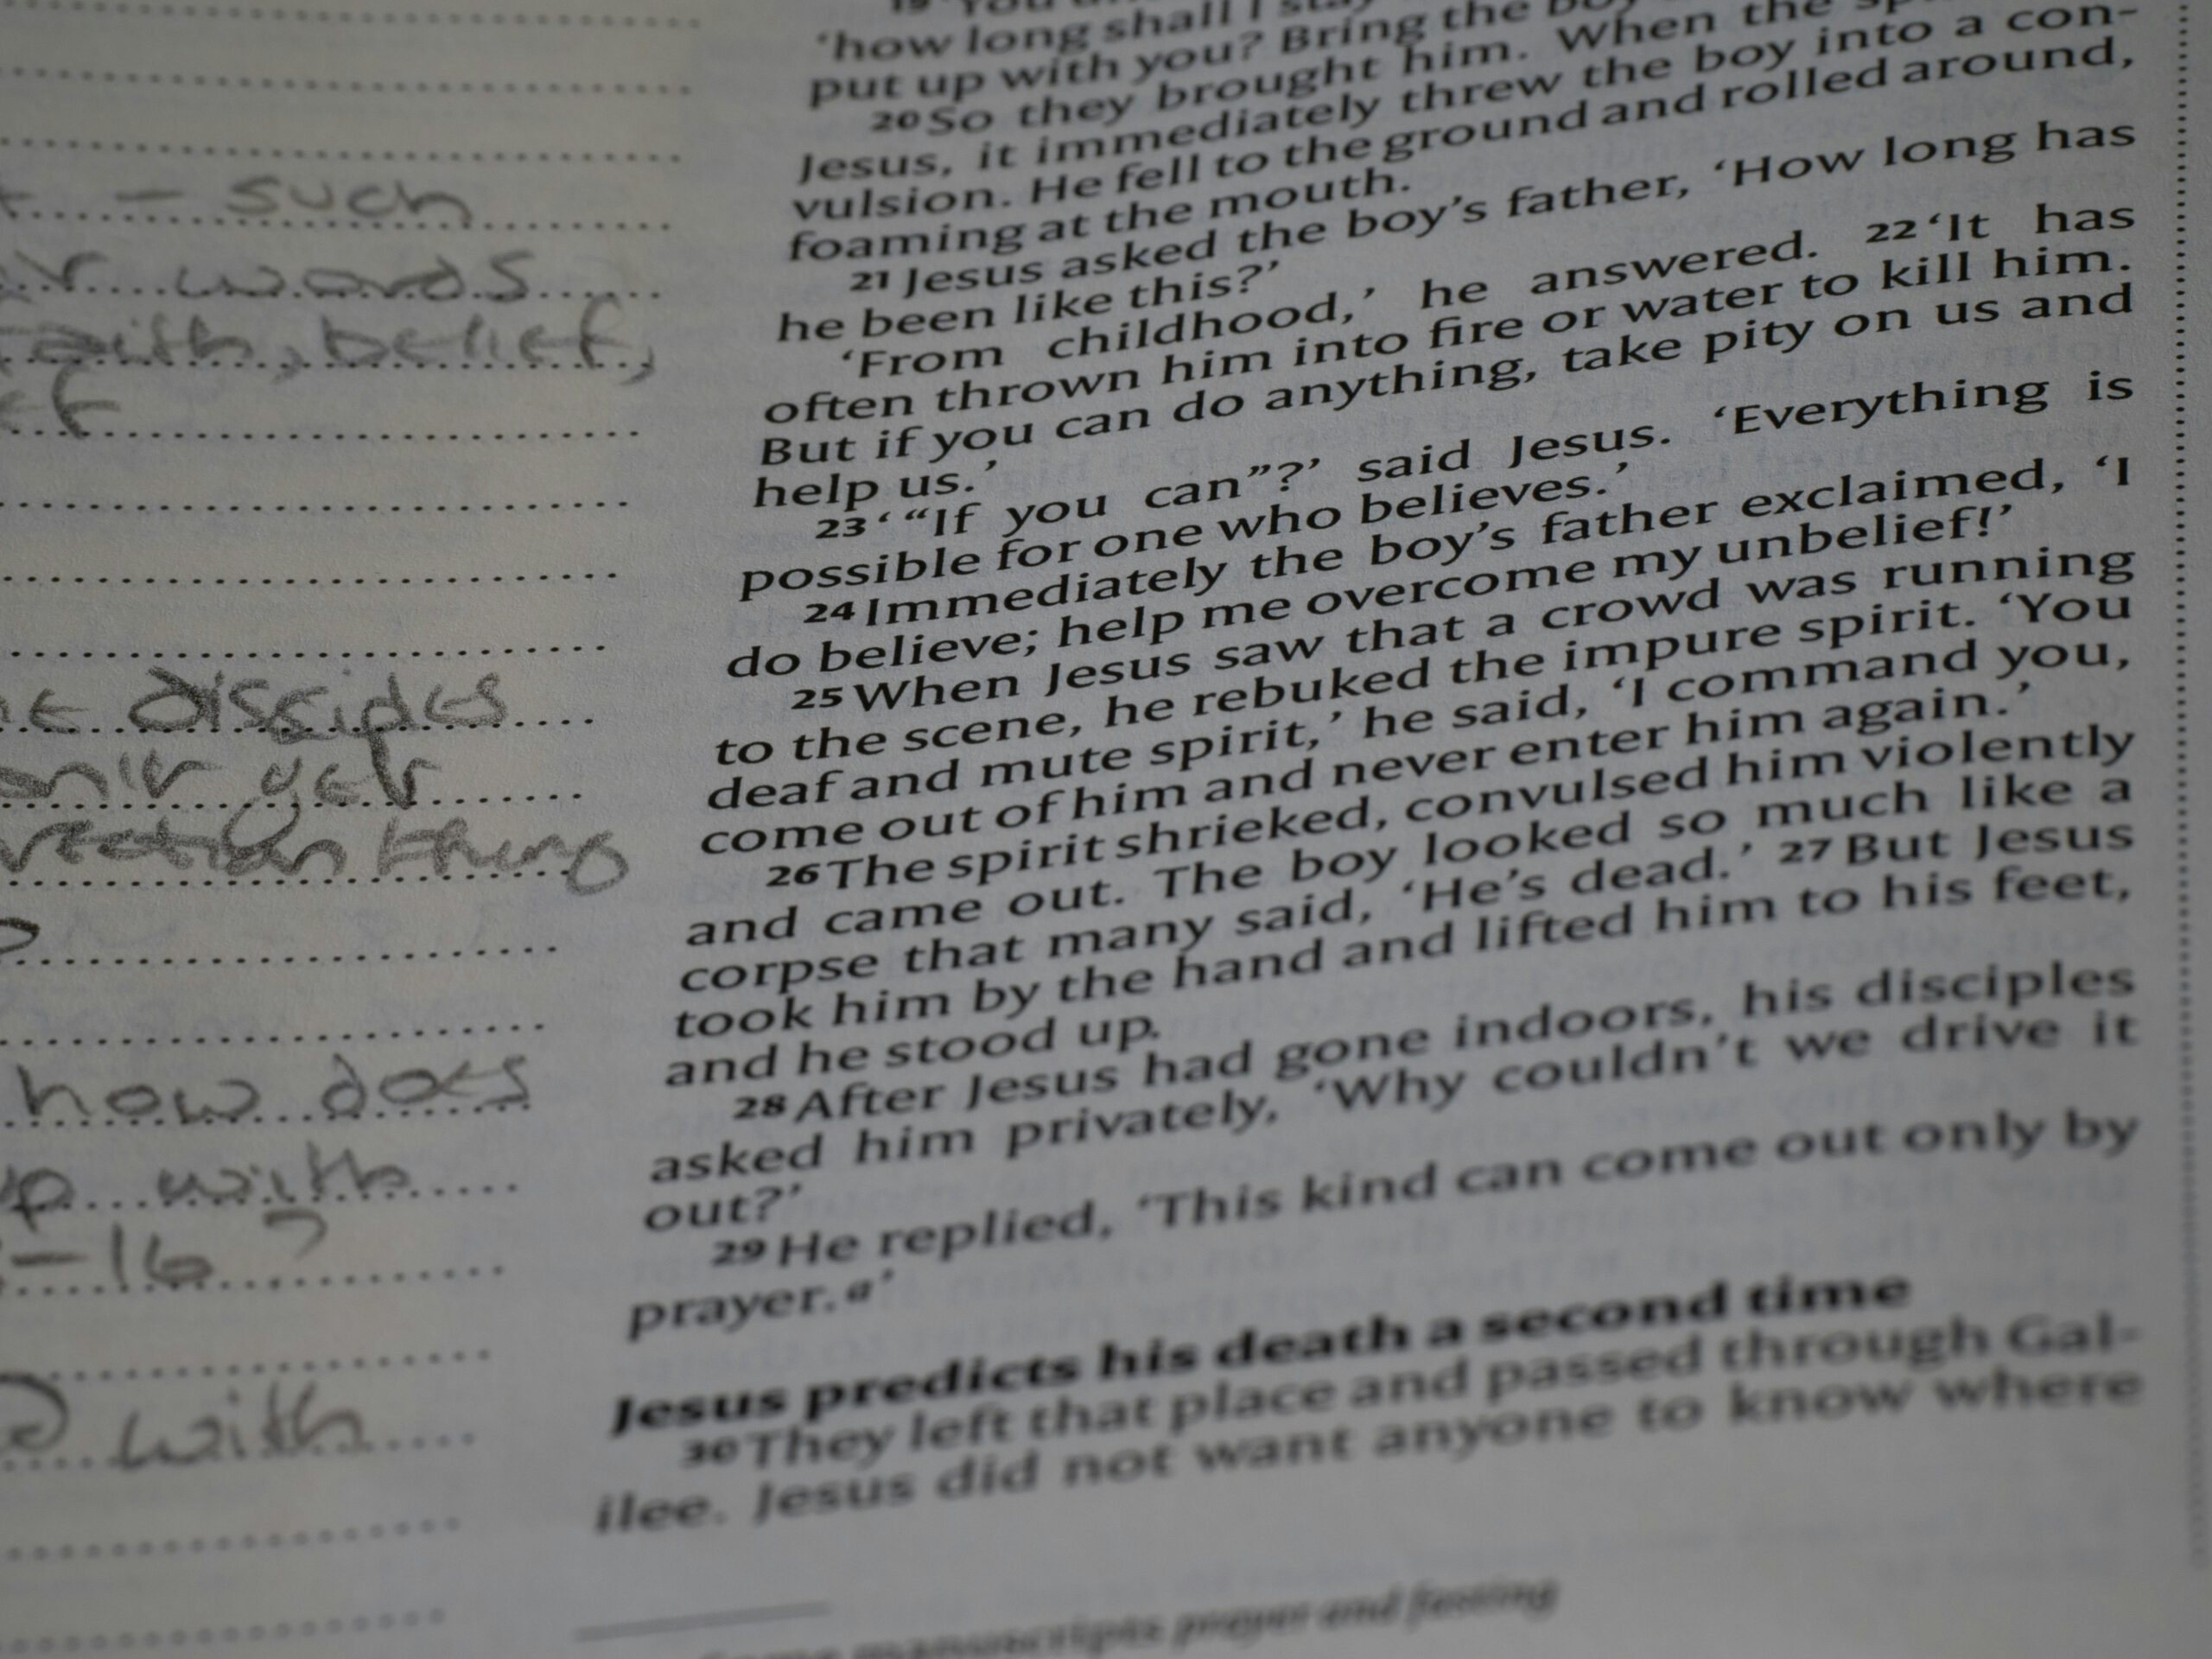 - such
words
faith, belief,
dissiples
get
thing
how does
with
-16?
with
19 'You
'how long shall I stay
put up with you? Bring the boy
20 So they brought him. When the
Jesus, it immediately threw the boy into a con-
vulsion. He fell to the ground and rolled around,
foaming at the mouth.
21 Jesus asked the boy's father, 'How long has
he been like this?'
'From childhood,' he answered. 22 'It has
often thrown him into fire or water to kill him.
But if you can do anything, take pity on us and
help us.'
23 '"If you can"?' said Jesus. 'Everything is
possible for one who believes.'
24 Immediately the boy's father exclaimed, 'I
do believe; help me overcome my unbelief!'
25 When Jesus saw that a crowd was running
to the scene, he rebuked the impure spirit. 'You
deaf and mute spirit,' he said, 'I command you,
come out of him and never enter him again.'
26 The spirit shrieked, convulsed him violently
and came out. The boy looked so much like a
corpse that many said, 'He's dead.' 27 But Jesus
took him by the hand and lifted him to his feet,
and he stood up.
28 After Jesus had gone indoors, his disciples
asked him privately, 'Why couldn't we drive it
out?'
29 He replied, 'This kind can come out only by
prayer.a'
Jesus predicts his death a second time
30 They left that place and passed through Gal-
ilee. Jesus did not want anyone to know where
Some manuscripts prayer and fasting